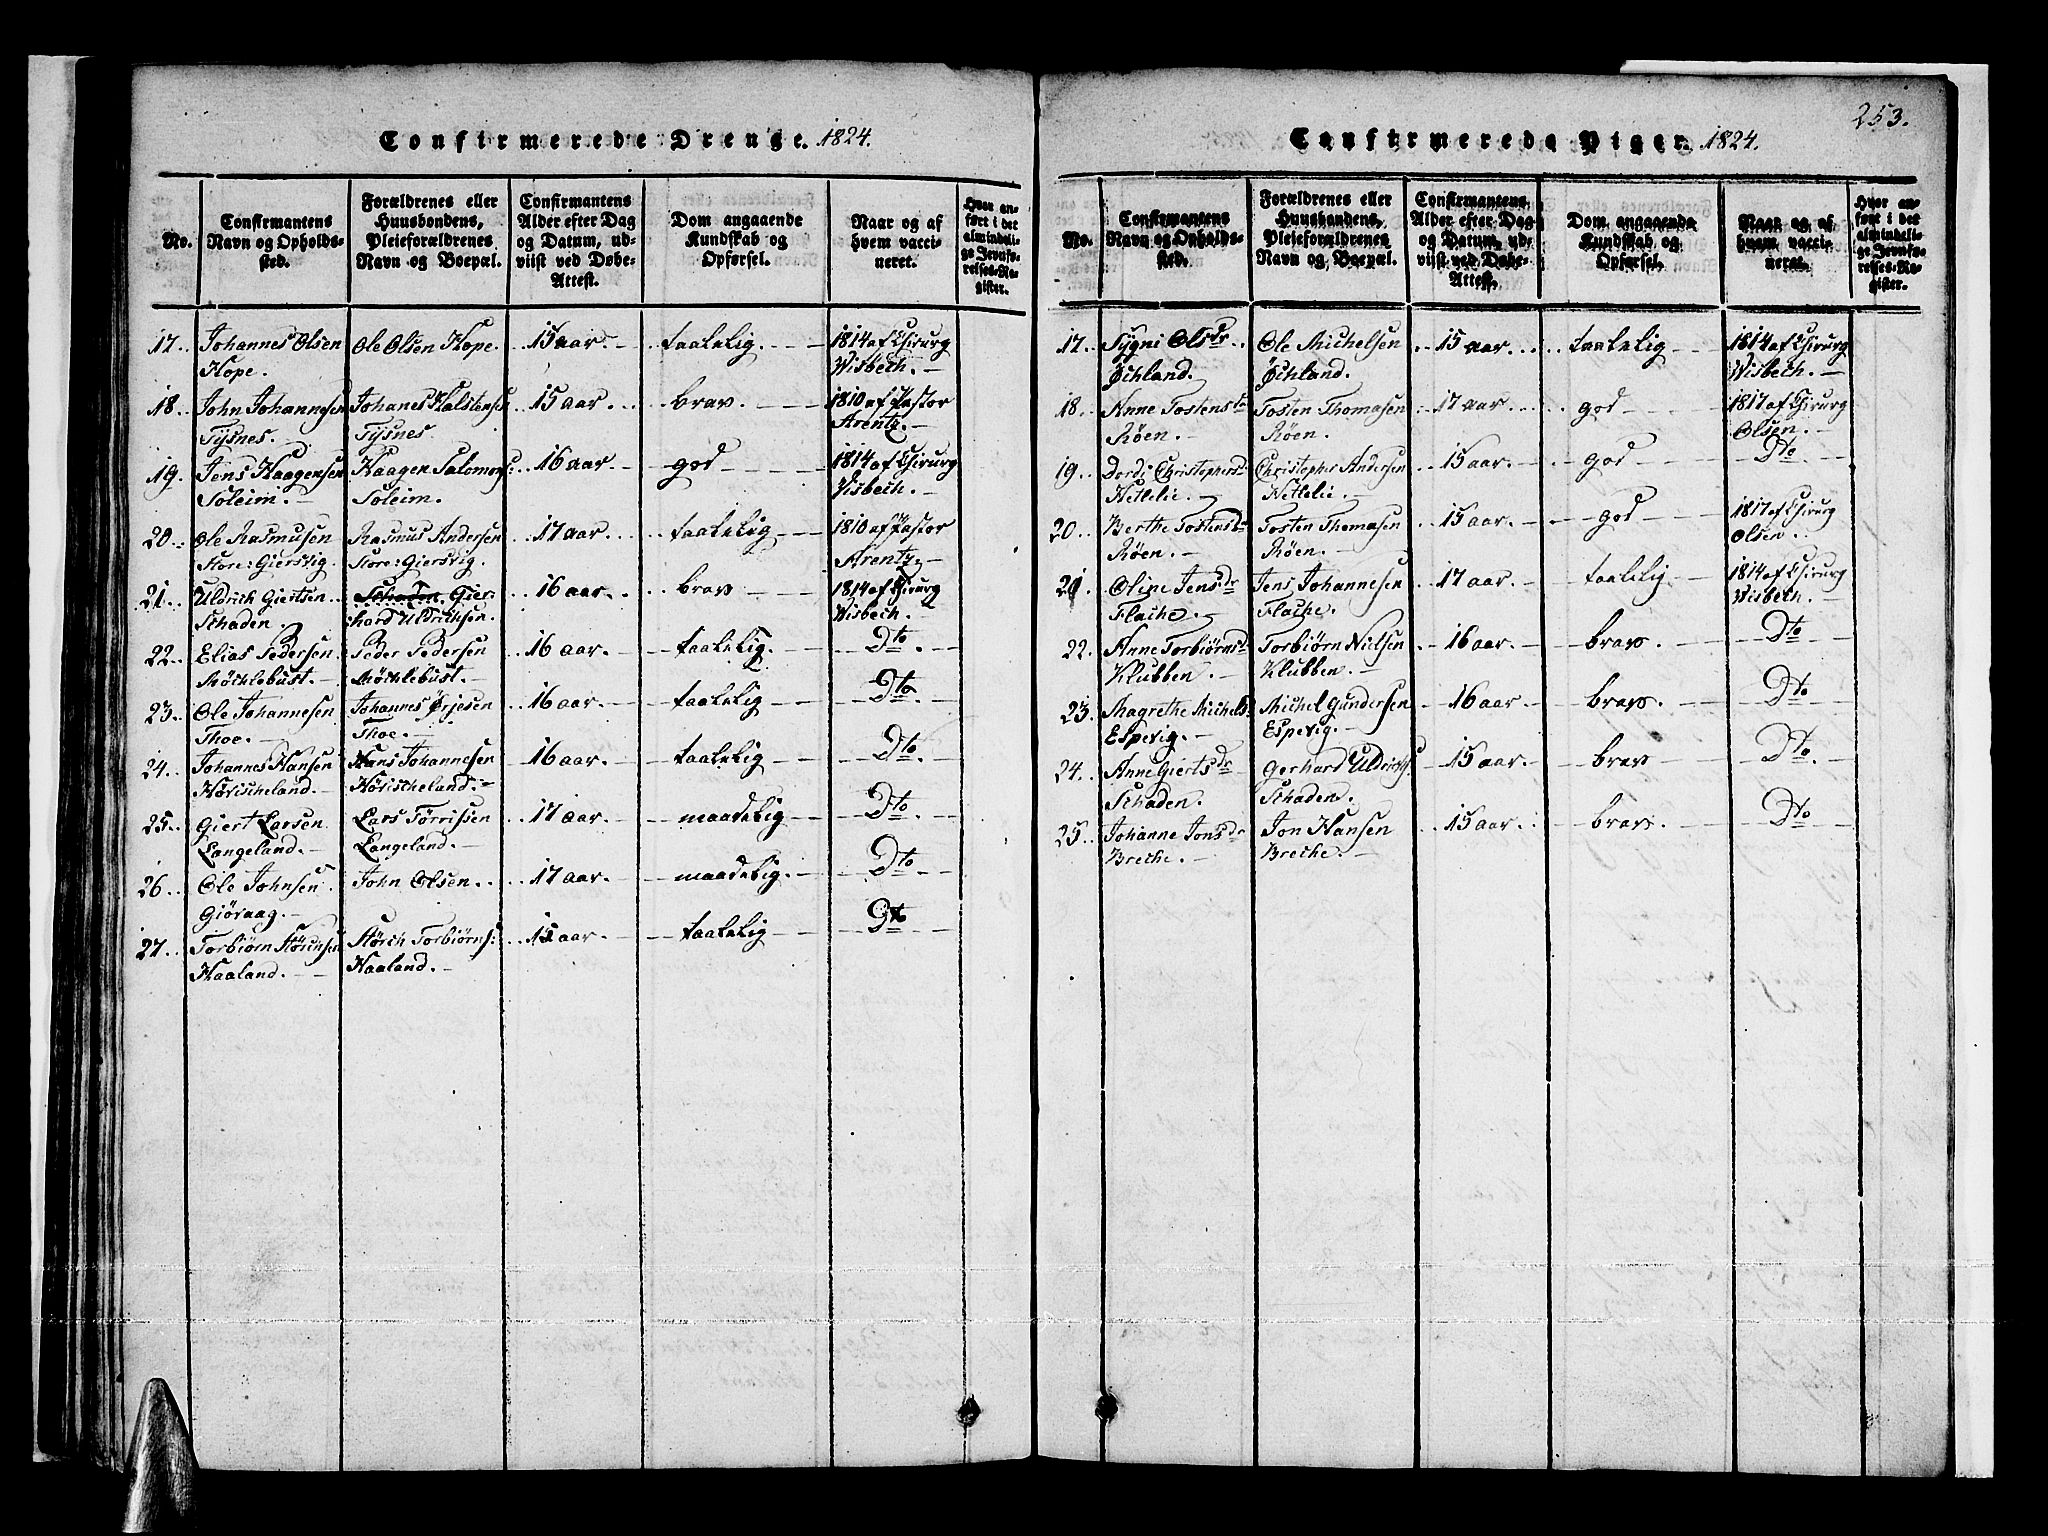 253.
Confirmerede Drenge. 1824.
No.
Confirmantens Navn og Opholdssted.
Forældrenes eller Huusbondens, Pleieforældrenes Navn og Boepæl.
Confirmantens Alder efter Dag og Datum, udviist ved Døbe-Attest.
Dom angaaende Kundskab og Opførsel.
Naar og af hvem vaccineret.
Hvor anført i det almindelige Jevnførelses-Register.
17. Johannes Olsen Ole Olsen Hope. 15 aar taalelig. 1814 af Chirurg
Hope. Wisbech.
18. John Johannesen Johanes Halstensen 15 aar brav 1810 af Pastor
Tysnes. Tysnes. Arentz.
19. Jens Haagensen Haagen Salomons: 16 aar god 1814 af Chirurg
Soleim. Soleim. Wisbech.
20. Ole Rasmusen Rasmus Andersen 17 aar taalelig 1810 af Pastor
Store: Giersvig. Store: Giersvig. Arentz
21. Uldrich Giertsen Schaden. Gier- 16 aar. brav 1814 af Chirurg
Schaden. hard Uldrichsen. Wisbech.
22. Elias Pedersen Peder Pedersen 16 aar. taalelig. Dto.
Møchlebust. Møchlebust.
23. Ole Johannesen Johannes Ørjesen 16 aar taalelig Dto
Thoe. Thoe.
24. Johannes Hansen Hans Johannesen 16 aar. taalelig Dto
Hovischeland. Hovischeland.
25. Giert Larsen Lars Tørrissen 17 aar maadelig Dto.
Langeland. Langeland.
26. Ole Johnsen John Olsen. 17 aar maadelig. Dto
Giøraag.
27. Torbiørn Størchsen Størch Torbiørns: 15 aar taalelig Dto
Haaland. Haaland.
Confirmerede Piger. 1824.
No.
Confirmantens Navn og Opholdssted.
Forældrenes eller Huusbondens, Pleieforældrenes Navn og Boepæl.
Confirmantens Alder efter Dag og Datum, udviist ved Døbe-Attest.
Dom angaaende Kundskab og Opførsel.
Naar og af hvem vaccineret.
Hvor anført i det almindelige Jevnførelses-Register.
17. Sygni Olsdr. Ole Michelsen 15 aar taalelig 1814 af Chirurg
Øchland. Øchland. Wisbech.
18. Anne Tostensd Tosten Thomasen 17 aar god 1817 af Chirurg
Røen. Røen. Olsen.
19. Dordi Christophersd Christopher Andersen 15 aar. god Dto
Nettelie. Nettelie.
20. Berthe Tostensd Tosten Thomasen 15 aar. god 1817 af Chirurg
Røen. Røen. Olsen.
21. Oline Jensdr Jens Johannesen 17 aar. taalelig 1814 af Chirurg
Flache. Flache. Wisbech.
22. Anne Torbiørnsd Torbiørn Nielsen 16 aar. brav Dto
Klubben. Klubben.
23. Magrethe Michels Michel Gundersen 16 aar brav. Dto
Espevig. Espevig.
24. Anne Giertsdr Gerhard Uldrichs 15 aar. brav Dto.
Schaden. Schaden.
25. Johanne Jonsdr Jon Hansen 15 aar brav. Dto
Breche. Breche.